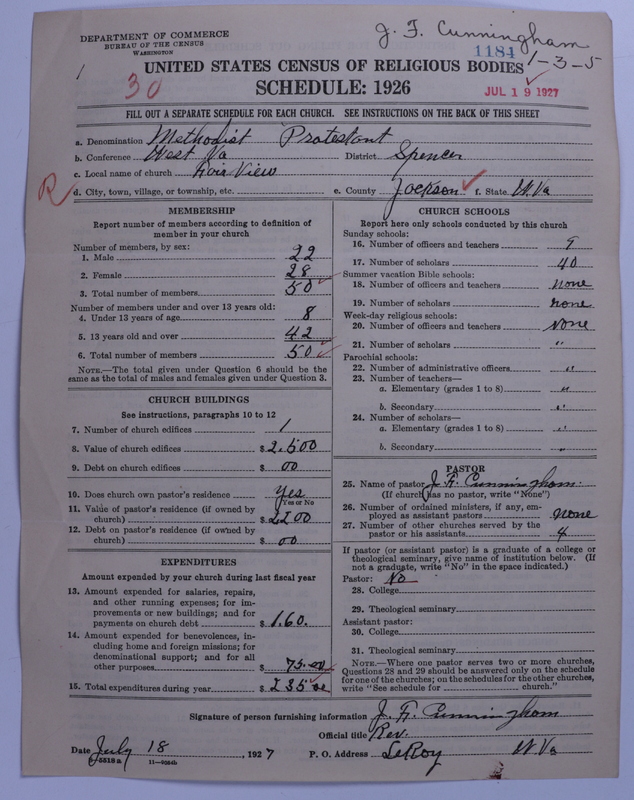 DEPARTMENT OF COMMERCE
BUREAU OF THE CENSUS
WASHINGTON
J. F. Cunningham
1184
1-3-5
1
30
UNITED STATES CENSUS OF RELIGIOUS BODIES
SCHEDULE: 1926
JUL 19 1927
FILL OUT A SEPARATE SCHEDULE FOR EACH CHURCH. SEE INSTRUCTIONS ON THE BACK OF THIS SHEET
a. Denomination Methodist Protestant
b. Conference West Va District Spencer
c. Local name of church View
R
d. City, town, village, or township, etc. e. County Jackson f. State W. Va
MEMBERSHIP
Report number of members according to definition of member in your church
Number of members, by sex:
1. Male 22
2. Female 28
3. Total number of members 50
Number of members under and over 13 years old:
4. Under 13 years of age 8
5. 13 years old and over 42
6. Total number of members 50
NOTE.—The total given under Question 6 should be the same as the total of males and females given under Question 3.
CHURCH BUILDINGS
See instructions, paragraphs 10 to 12
7. Number of church edifices 1
8. Value of church edifices $ 2.500
9. Debt on church edifices $ 00
10. Does church own pastor's residence Yes
Yes or No
11. Value of pastor's residence (if owned by church) $ 2500
12. Debt on pastor's residence (if owned by church) $ 00
EXPENDITURES
Amount expended by your church during last fiscal year
13. Amount expended for salaries, repairs, and other running expenses; for improvements or new buildings; and for payments on church debt $ 160.
14. Amount expended for benevolences, including home and foreign missions; for denominational support; and for all other purposes $ 75.00
15. Total expenditures during year $ 235 00
CHURCH SCHOOLS
Report here only schools conducted by this church
Sunday schools:
16. Number of officers and teachers 9
17. Number of scholars 40
Summer vacation Bible schools:
18. Number of officers and teachers none
19. Number of scholars none
Week-day religious schools:
20. Number of officers and teachers none
21. Number of scholars "
Parochial schools:
22. Number of administrative officers "
23. Number of teachers—
a. Elementary (grades 1 to 8) "
b. Secondary "
24. Number of scholars—
a. Elementary (grades 1 to 8) "
b. Secondary "
PASTOR
25. Name of pastor J. F. Cunningham.
(If church has no pastor, write "None")
26. Number of ordained ministers, if any, employed as assistant pastors none
27. Number of other churches served by the pastor or his assistants 4
If pastor (or assistant pastor) is a graduate of a college or theological seminary, give name of institution below. (If not a graduate, write "No" in the space indicated.)
Pastor: No
28. College
29. Theological seminary
Assistant pastor:
30. College
31. Theological seminary
NOTE.—Where one pastor serves two or more churches, Questions 28 and 29 should be answered only on the schedule for one of the churches; on the schedules for the other churches, write "See schedule for church."
Signature of person furnishing information J. F. Cunningham
Official title Rev.
Date July 18, 1927 P. O. Address LeRoy W Va
11—9054b